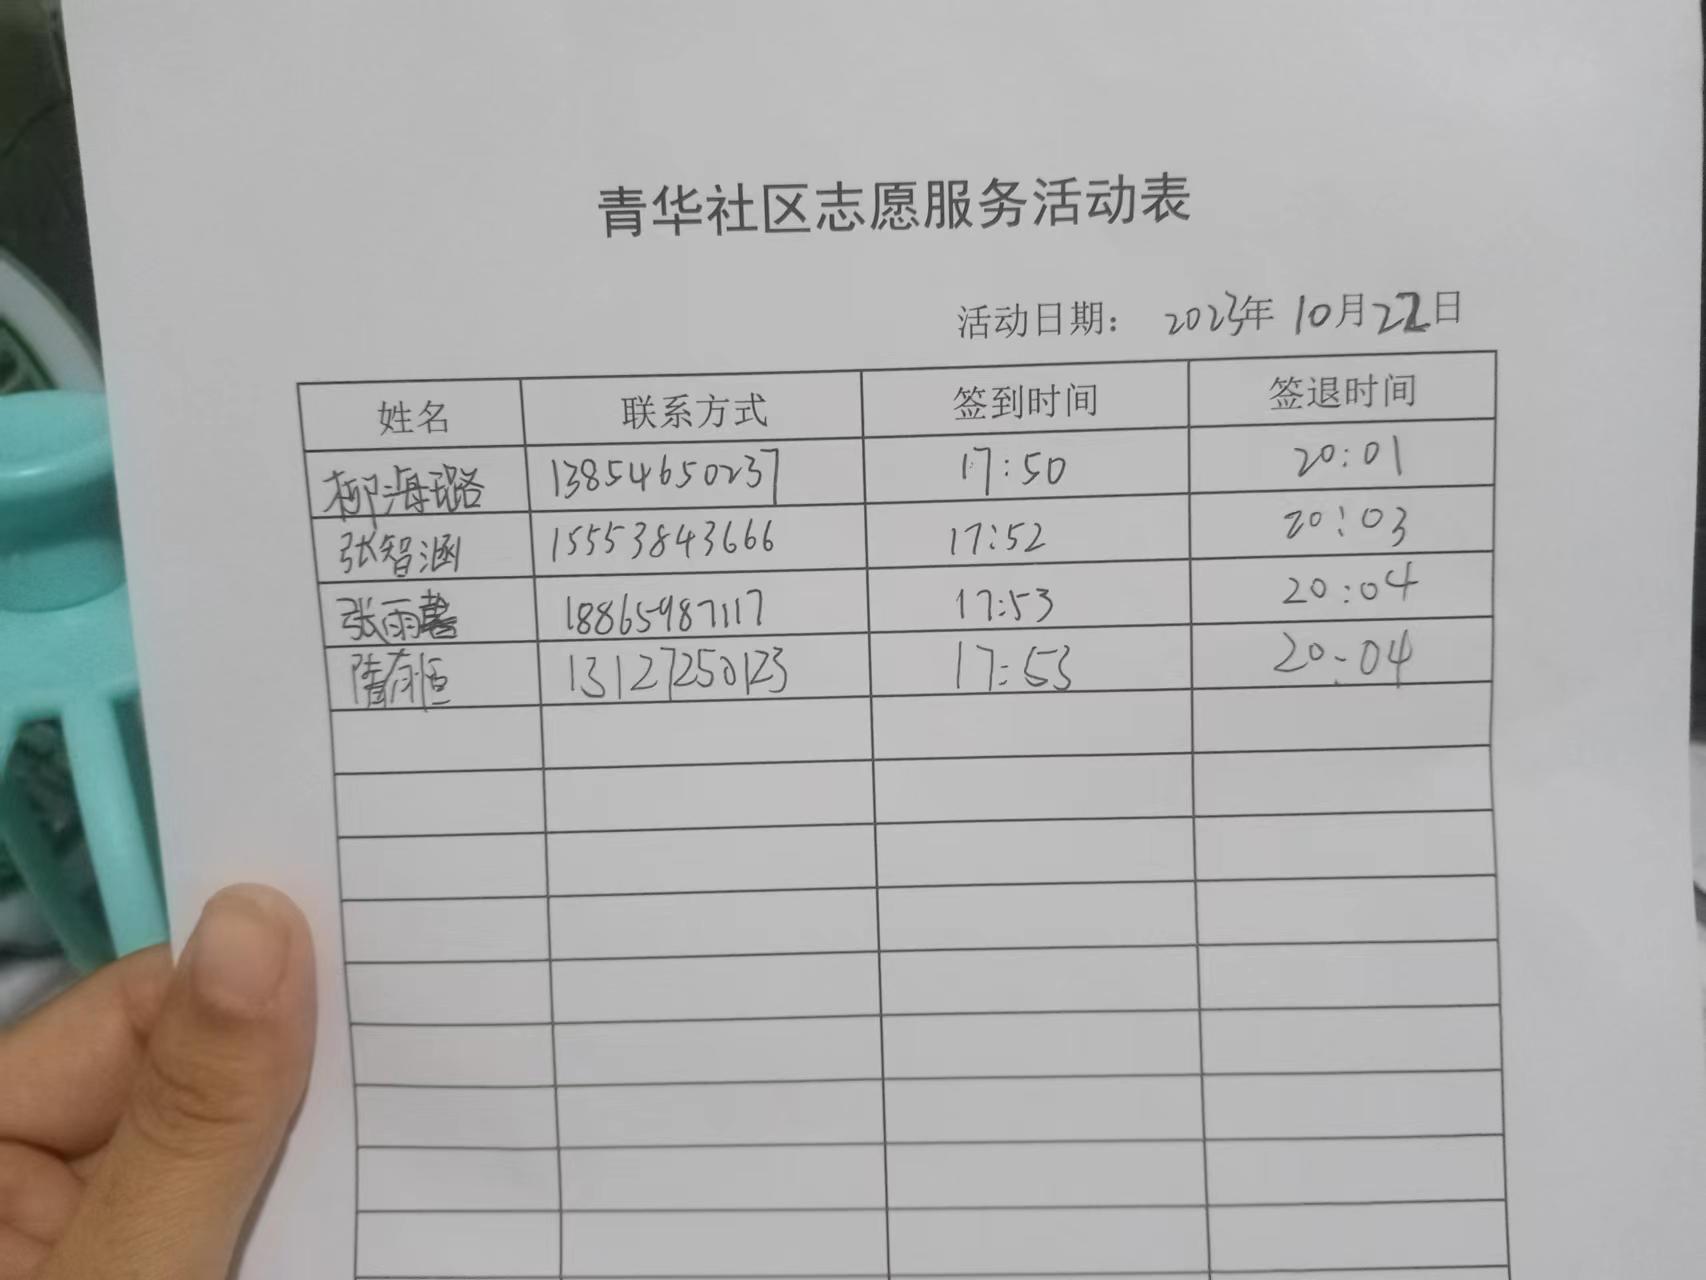 青华社区志愿服务活动表
活动日期： 2023年 10月22日
姓名 联系方式 签到时间 签退时间
柳海璐 13854650237 17:50 20:01
张智涵 15553843666 17:52 20:03
张雨馨 18865987117 17:53 20:04
隋有恒 13127250123 17:53 20:04